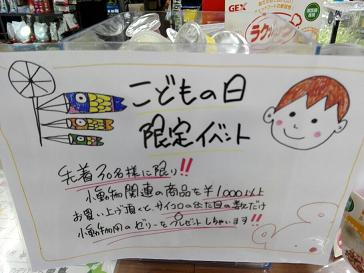 GEX
こどもの日
限定イベント
先着30名様に限り!!
小動物関連の商品を¥1000以上
お買い上げ頂くと、サイコロの出た目の数だけ
小動物用のゼリーをプレゼントしちゃいます!!